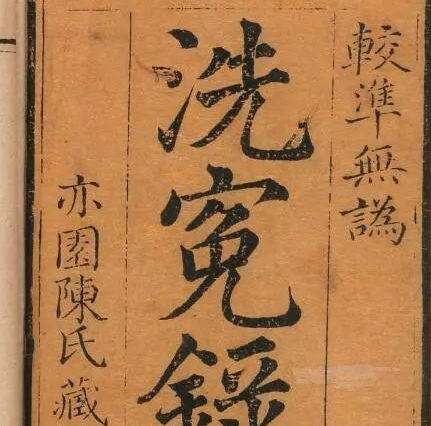 較準無譌
洗寃錄
亦園陳氏藏